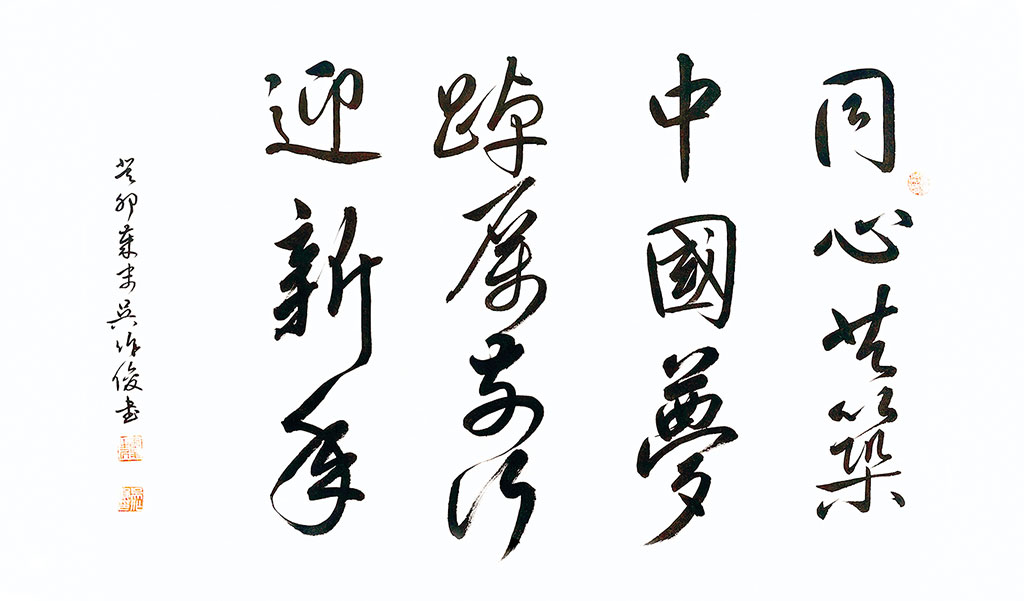 同心共築
中國夢
踔厲前行
迎新年
癸卯歲末吳作俊書